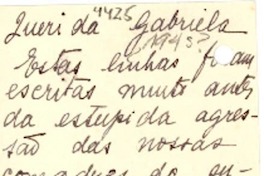 Querida Gabriela
4425
1943?
Estas linhas foram
escritas muito antes
da estupida agres-
são das nossas